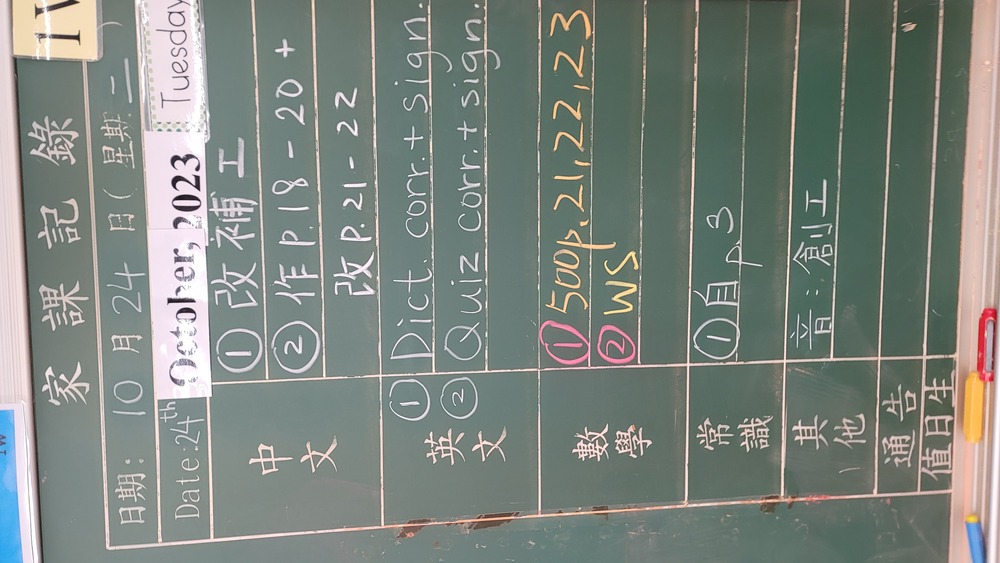 家課記錄
1W
日期: 10月24日(星期二)
Date:24th October, 2023 Tuesday
中文
①改補工
②作P.18-20+
改P.21-22
英文
① Dict. corr.+sign.
② Quiz corr.+sign.
數學
①500p.21,22,23
②WS
常識
①自p3
其他
音:創工
通告
值日生
1W